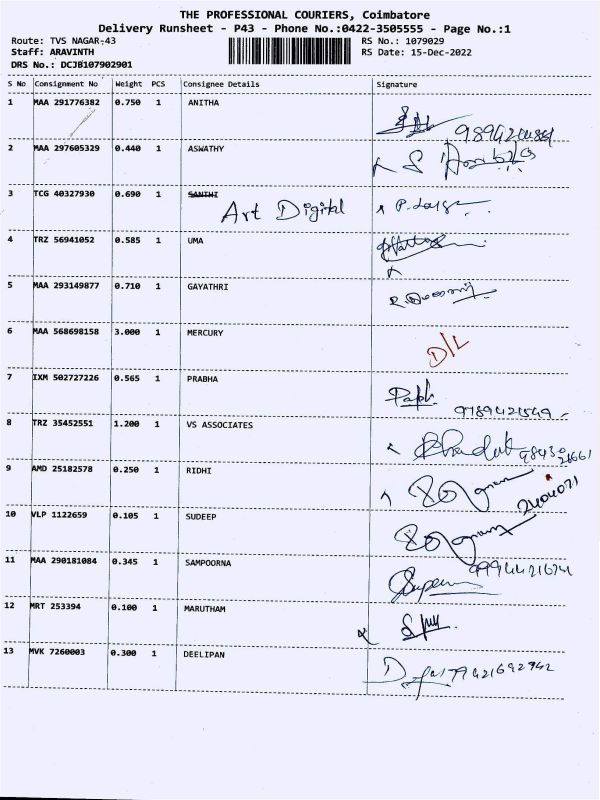 THE PROFESSIONAL COURIERS, Coimbatore
Delivery Runsheet - P43 - Phone No.:0422-3505555 - Page No.:1
Route: TVS NAGAR-43 RS No.: 1079029
Staff: ARAVINTH RS Date: 15-Dec-2022
DRS No.: DCJB107902901
S No Consignment No Weight PCS Consignee Details Signature
1 MAA 291776382 0.750 1 ANITHA
2 MAA 297605329 0.440 1 ASWATHY
3 TCG 40327930 0.690 1 SANTHI
Art Digital
4 TRZ 56941052 0.585 1 UMA
5 MAA 293149877 0.710 1 GAYATHRI
6 MAA 568698158 3.000 1 MERCURY D/L
7 IXM 502727226 0.565 1 PRABHA
9789421549
8 TRZ 35452551 1.200 1 VS ASSOCIATES
9 AMD 25182578 0.250 1 RIDHI
10 VLP 1122659 0.105 1 SUDEEP
11 MAA 290181084 0.345 1 SAMPOORNA
12 MRT 253394 0.100 1 MARUTHAM
13 MVK 7260003 0.300 1 DEELIPAN